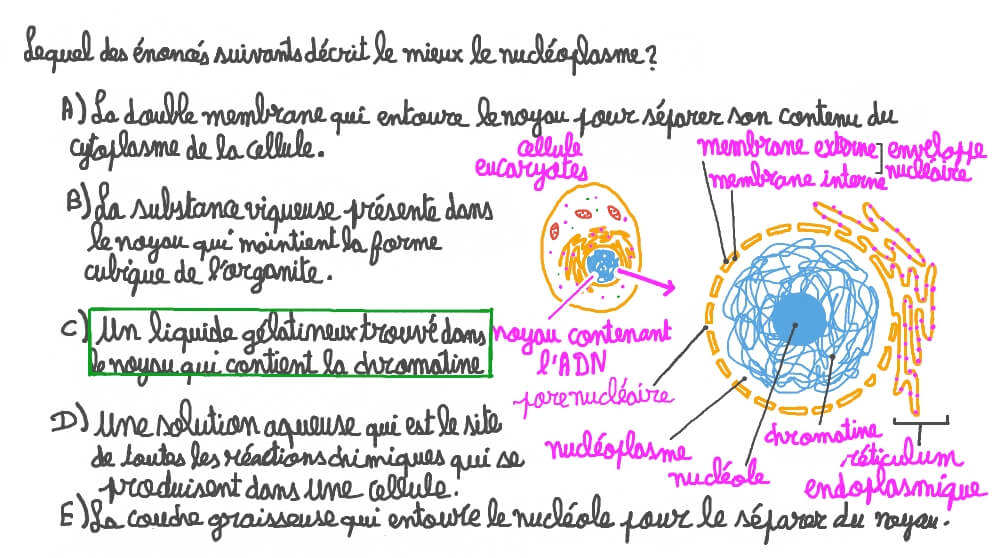 Lequel des énoncés suivants décrit le mieux le nucléoplasme ?
A) La double membrane qui entoure le noyau pour séparer son contenu du
cytoplasme de la cellule.
B) La substance viqueuse présente dans
le noyau qui maintient la forme
cubique de l'organite.
C) Un liquide gélatineux trouvé dans
le noyau qui contient la chromatine
D) Une solution aqueuse qui est le site
de toutes les réactions chimiques qui se
produisent dans une cellule.
E) La couche graisseuse qui entoure le nucléole pour le séparer du noyau.
cellule
eucaryotes
noyau contenant
l'ADN
membrane externe
membrane interne
enveloppe
nucléaire
pore nucléaire
nucléoplasme
nucléole
chromatine
réticulum
endoplasmique